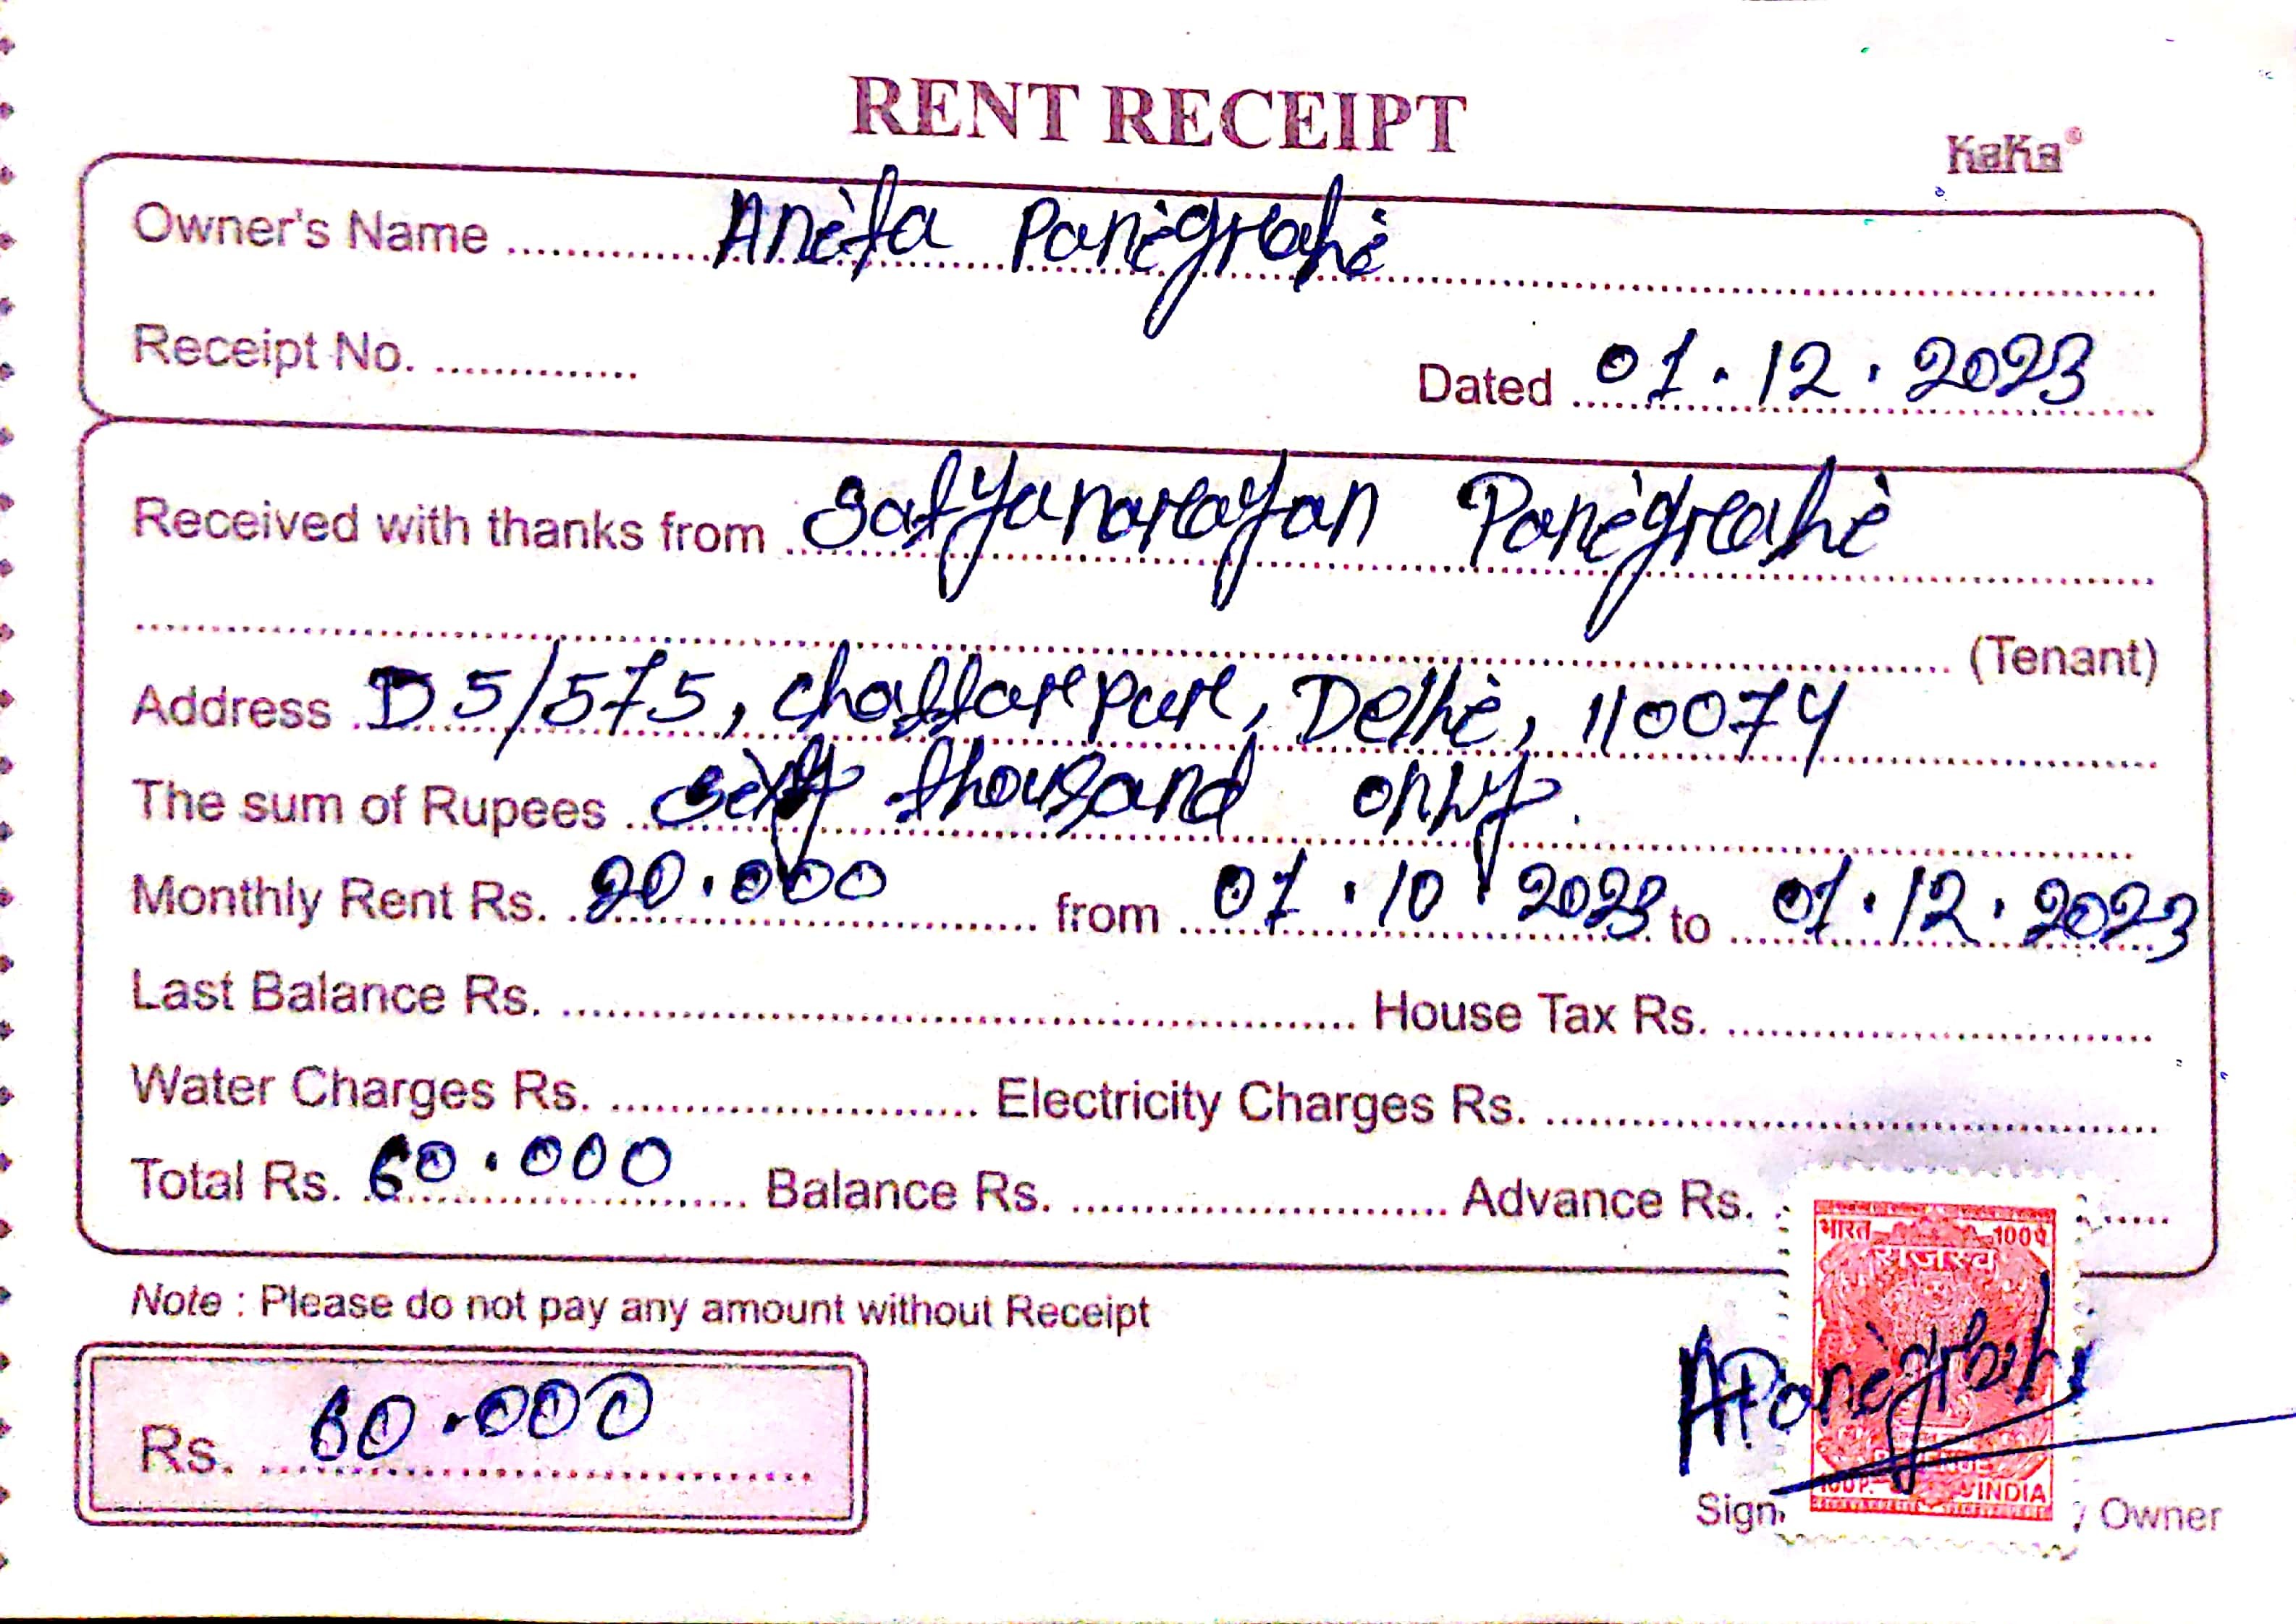 RENT RECEIPT
KaKa®
Owner's Name Anita Panigrahi
Receipt No. Dated 01.12.2023
Received with thanks from Satyanarayan Panigrahi
(Tenant)
Address D 5/575, Chattarpur, Delhi, 110074
The sum of Rupees Sixty thousand only.
Monthly Rent Rs. 20.000 from 01.10.2023 to 01.12.2023
Last Balance Rs. House Tax Rs.
Water Charges Rs. Electricity Charges Rs.
Total Rs. 60.000 Balance Rs. Advance Rs.
भारत 100प
राजस्व
Note : Please do not pay any amount without Receipt
Rs. 60.000
APanigrahi
INDIA
Sign. Owner